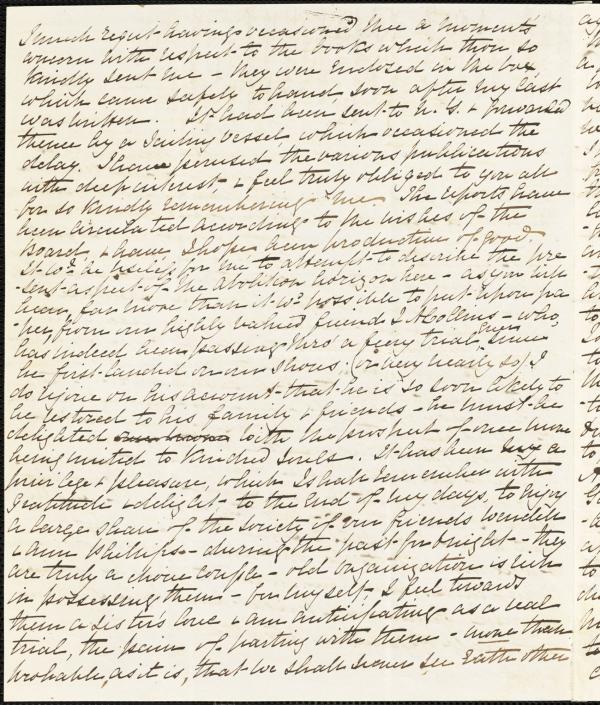 I much regret having occasioned thee a moment's
concern with respect to the books which thou so
kindly sent me - they were enclosed in the box
which came safely to hand soon after my last
was written. It had been sent to N. Y. & forwarded
thence by a sailing vessel, which occasioned the
delay. I have perused the various publications
with deep interest, & feel truly obliged to you all
for so kindly remembering me. The reports have
been circulated according to the wishes of the
Board & have, I hope been productive of good
It wd. be useless for me to attempt to describe the pre
sent aspect of the abolition horizon here - as you will
hear, far more than it wd. possible to put upon pa
per, from our highly valued friend J A Collins - who,
has indeed been passing thro' a fiery trial ever since
he first landed on our shores (or very nearly so) I
do rejoice on his account that he is so soon likely to
be restored to his family & friends - he must be
delighted with the prospect of once more
being united to kindred souls. It has been a
privilege & pleasure, which I shall remember with
gratitude & delight to the end of my days, to enjoy
a large share of the society of our friends Wendell
& Ann Phillips - during the past fortnight - they
are truly a choice couple - old organization is rich
in possessing them - for myself I feel towards
them a sister's love & am anticipating as a real
trial, the pain of parting with them - more than
probable, as it is, that we shall never see each other